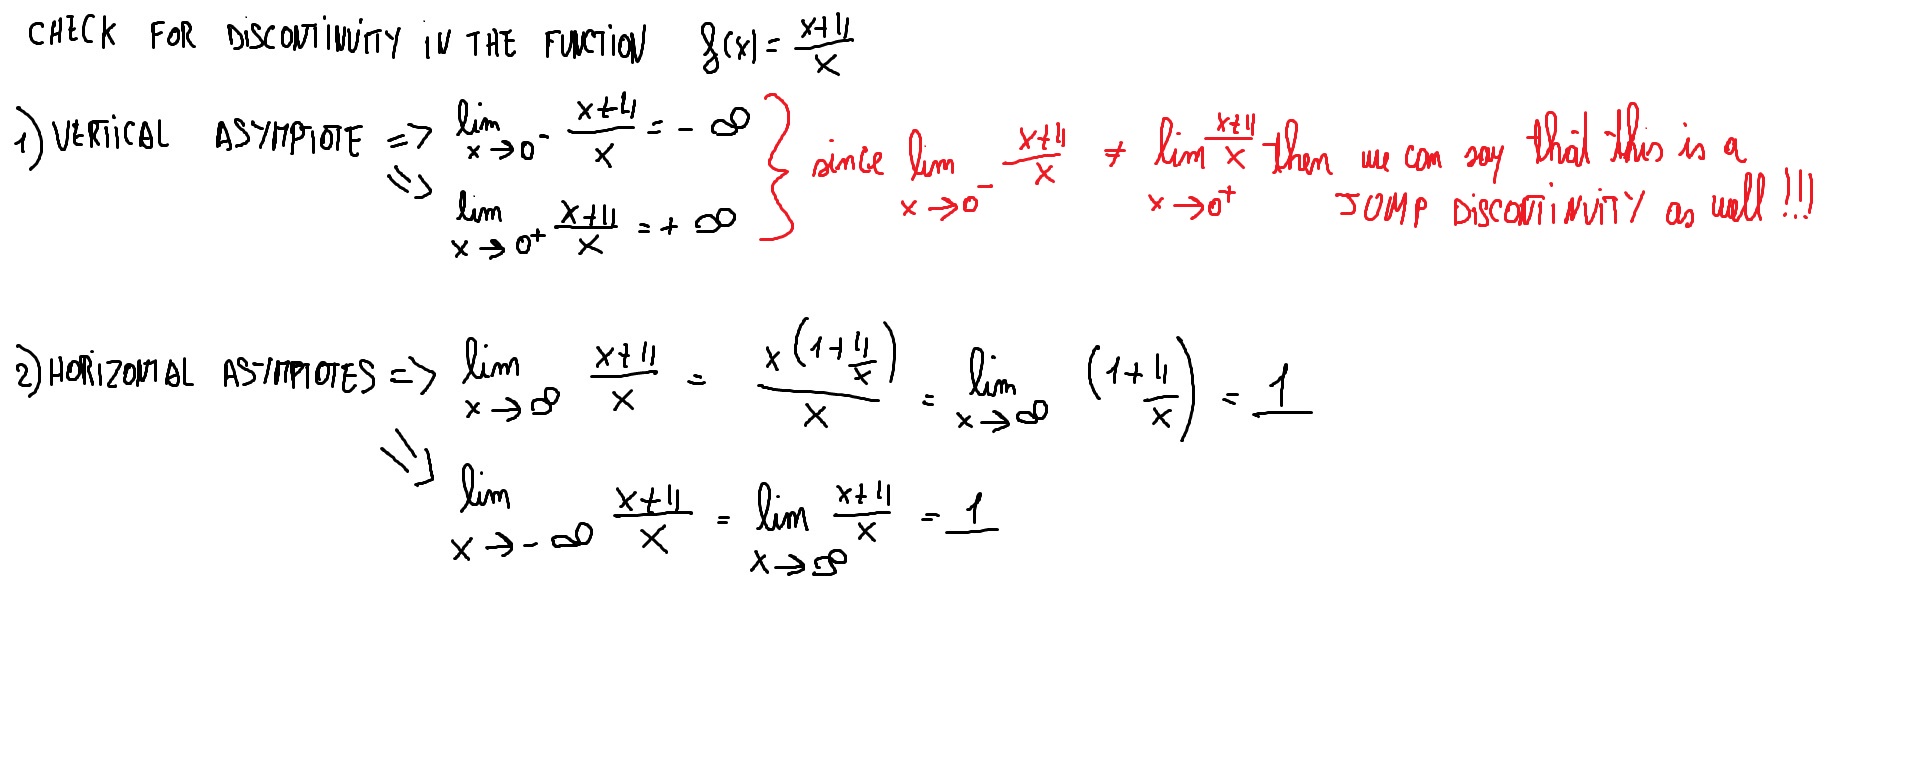 CHECK FOR DISCONTINUITY IN THE FUNCTION f(x) = \frac{x+4}{x}
1) VERTICAL ASYMPTOTE => \lim_{x \to 0^-} \frac{x+4}{x} = -\infty
=> \lim_{x \to 0^+} \frac{x+4}{x} = +\infty
} since \lim_{x \to 0^-} \frac{x+4}{x} \neq \lim_{x \to 0^+} \frac{x+4}{x} then we can say that this is a
JUMP DISCONTINUITY as well!!!
2) HORIZONTAL ASYMPTOTES => \lim_{x \to \infty} \frac{x+4}{x} = \frac{x(1+\frac{4}{x})}{x} = \lim_{x \to \infty} (1+\frac{4}{x}) = 1
=> \lim_{x \to -\infty} \frac{x+4}{x} = \lim_{x \to \infty} \frac{x+4}{x} = 1